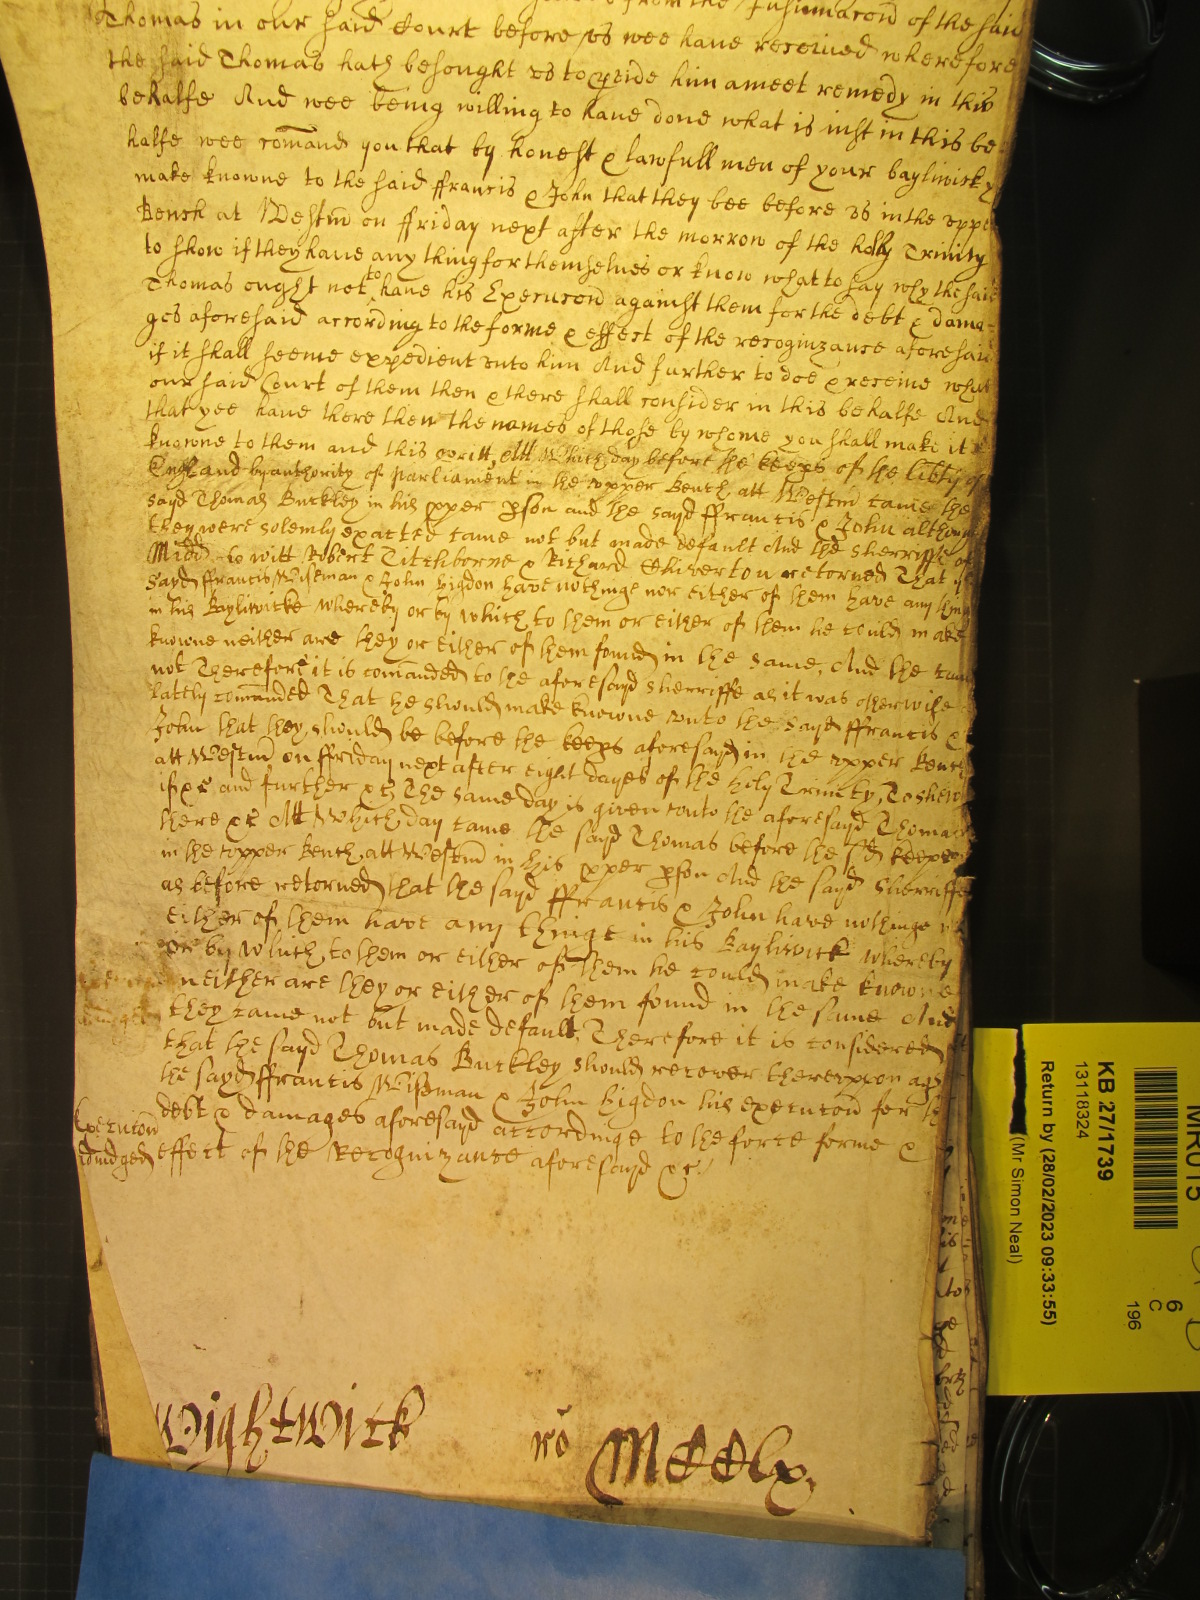 from the Insinuacon of the said
Thomas in our said Court before us wee have received wherefore
the said Thomas hath besought us to pvide him a meet remedy in this
behalfe And wee being willing to have done what is iust in this be
halfe wee comand you that by honest & lawfull men of your bayliwick y
make knowne to the said ffrancis & John that they bee before us in the uppe
Bench at Westm on ffriday next after the morrow of the holly Trinity
to show if they have any thing for themselves or know what to say why the said
Thomas ought not to have his Execucon against them for the debt & dama
ges aforesaid according to the forme & effect of the recognizance aforesaid
if it shall seeme expedient unto him And further to doe & receive what
our said Court of them then & there shall consider in this behalfe And
that yee have there then the names of those by whome you shall make it
knowne to them and this writt, Att Which day before the keeps of the libty of
England by authority of Parliament in the upper Bench att Westm came the
sayd Thomas Buckley in his pper pson and the sayd ffrancis & John although
they were solemly exacted came not but made default And the Sherriffe of
Midd to witt Robert Titchborne & Richard Chiverton retorned That the
sayd ffrancis Wiseman & John Higdon have nothinge nor either of them have any thing
in his Bayliwicke whereby or by which to them or either of them he could make
knowne neither are they or either of them found in the same, And the came
not Therefore it is comanded to the aforesayd Sherriffe as it was otherwise
lately comanded That he should make knowne unto the sayd ffrancis &
John that they should be before the keeps aforesayd in the upper Bench
att Westm on ffriday next after eight dayes of the holy Trinity, To shew
if &c and further &c The same day is given unto the aforesayd Thomas
here &c Att Which day came the sayd Thomas before the sd keepers
in the upper Bench att Westm in his pper pson And the sayd Sherriffe
as before retorned that the sayd ffrancis & John have nothinge n
either of them have any thinge in his Bayliwick whereby
or by which to them or either of them he could make knowne
neither are they or either of them found in the same And
they came not but made default, Therefore it is considered
that the sayd Thomas Buckley should recover thereupon agt
the sayd ffrancis Wiseman & John Higdon his execucon for th
debt & damages aforesayd accordinge to the force forme &
Execucon
adiudged
effect of the Recognizance aforesayd &c
Wightwick
ro
MCClx.
KB 27/1739
13118324
Return by (28/02/2023 09:33:55)
(Mr Simon Neal)
MR015
6
C
196